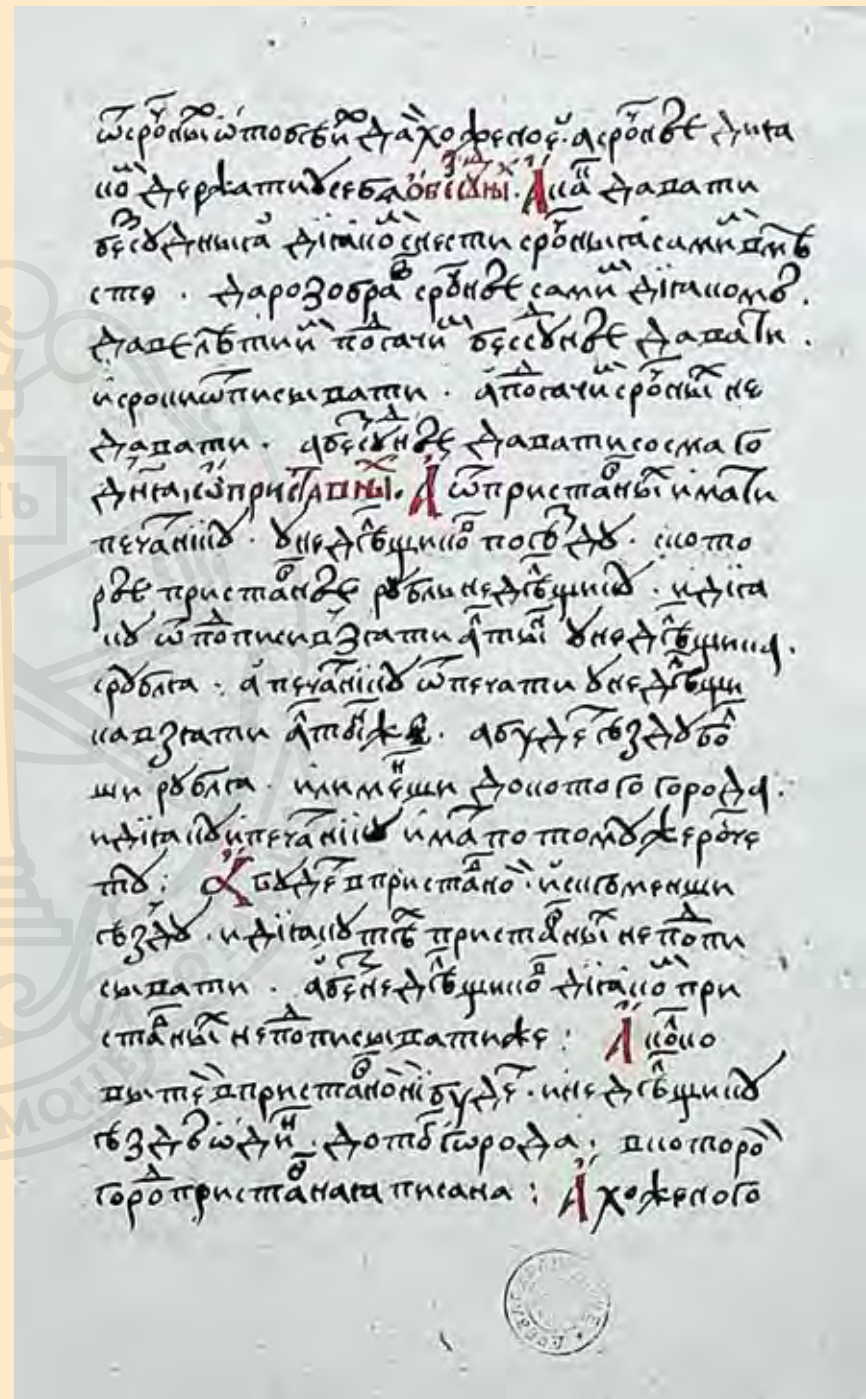 ѿсрочныи ѿтовсеи да хоженое. а срочные диꙗ
ко держати ꙋсебꙗ ѡбеⷥсꙋⷣныⷯ. А каⷦ давати
беⷥсудныꙗ диꙗкоⷨ снести срочныꙗ самиⷨ вмѣ
сто . да розобраⷡ срочные самиⷨ диꙗкомъ .
да велѣти иⷨ поⷣꙗчиⷨ беⷥсꙋⷣные давати .
и сроки ѿписывати . а поⷣꙗчиⷨ срочныⷯ не
давати . а беⷥсꙋⷣные давати с осмаго
днꙗ, ѿ приставныⷯ. А ѿ пристаⷡныⷯ имати
печатникꙋ . ꙋ неделщикоⷡ по езду . кото
рые пристаⷡные рꙋбль неделщикꙋ . и диꙗ
кꙋ ѿ поⷣписи взꙗти алтыⷩ ꙋ недѣлщика .
с рꙋблꙗ : а печатникꙋ ѿ печати ꙋ неделщи
ка взꙗти алтыⷩ же . а будеⷮ езду боⷧ
ши рꙋблꙗ . или меⷩши до котого города .
и диꙗкꙋ и печатникꙋ имаⷮ по томꙋже росче
тꙋ : А бꙋдеⷮ в пристаⷡноⷨ искъ менши
езду . и диꙗкꙋ теⷯ пристаⷡныⷯ не поⷣпи
сывати . а беⷥ недѣлщикоⷡ диꙗкоⷨ при
стаⷡныⷯ не поⷣписывати же : А коⷧко
выте в пристаⷡноⷨ ни будеⷮ . и неделщикꙋ
езды ѡдиⷩ . до тоⷢ города . в которои
гороⷣ пристаⷡнаꙗ писана : А хоженого